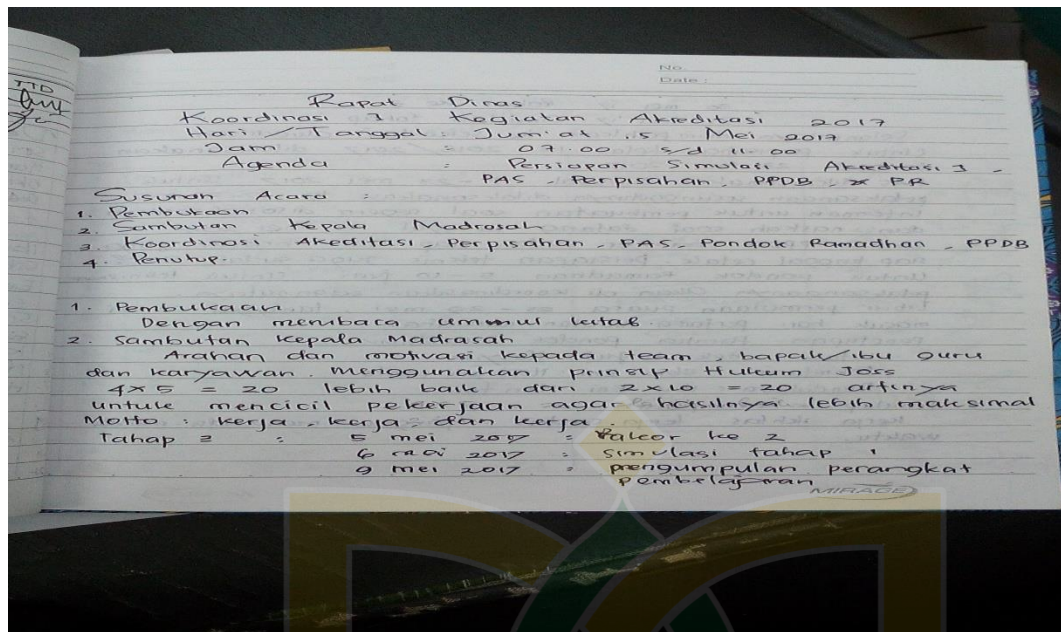 TTD
No.
Date :
Rapat Dinas
Koordinasi 1 Kegiatan Akreditasi 2017
Hari / Tanggal : Jum'at , 5 Mei 2017
Jam : 07.00 s/d 11.00
Agenda : Persiapan Simulasi Akreditasi 1 -
PAS - Perpisahan , PPDB , PR
Susunan Acara :
1. Pembukaan
2. Sambutan Kepala Madrasah
3. Koordinasi Akeditasi - Perpisahan - PAS - Pondok Ramadhan - PPDB
4. Penutup.
1. Pembukaan
Dengan membaca ummul kitab
2. Sambutan Kepala Madrasah
Arahan dan motivasi kepada team , bapak/ibu guru
dan karyawan . Menggunakan prinsip Hukum Joss
4x5 = 20 lebih baik dari 2x10 = 20 artinya
untuk mencicil pekerjaan agar hasilnya lebih maksimal
Motto : kerja , kerja , dan kerja .
Tahap 2 : 5 mei 2017 = Rakor ke 2
6 mei 2017 : simulasi tahap 1
9 mei 2017 : pengumpulan perangkat
pembelajaran
MIRAGE